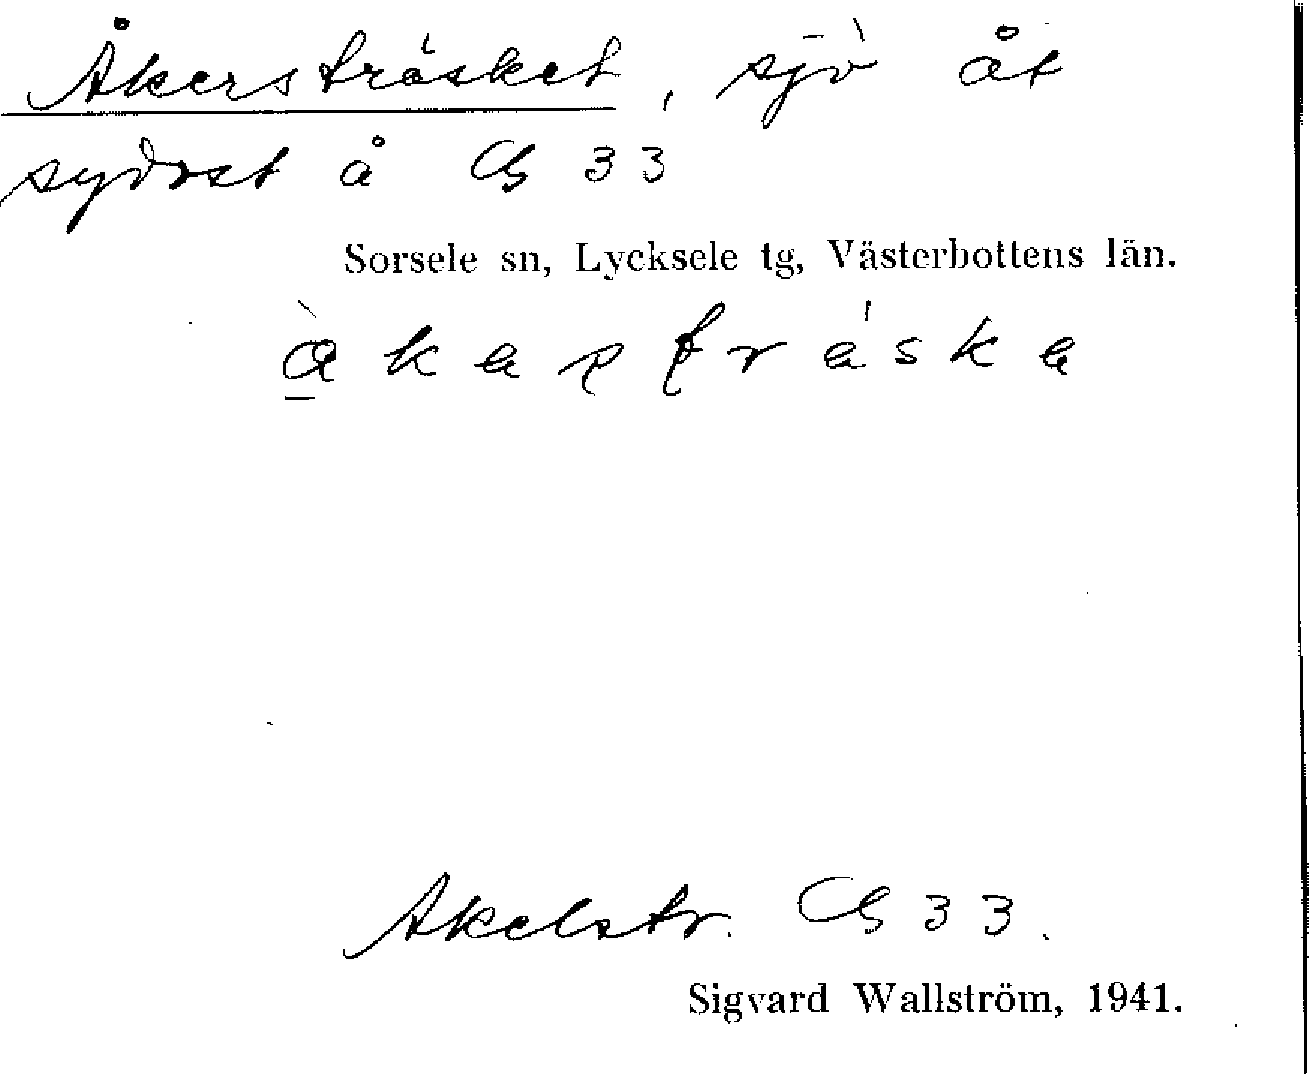 Åkersträsket, sjö åt
sydost å G 33
Sorsele sn, Lycksele tg, Västerbottens län.
Akelstr. G 33.
Sigvard Wallström, 1941.